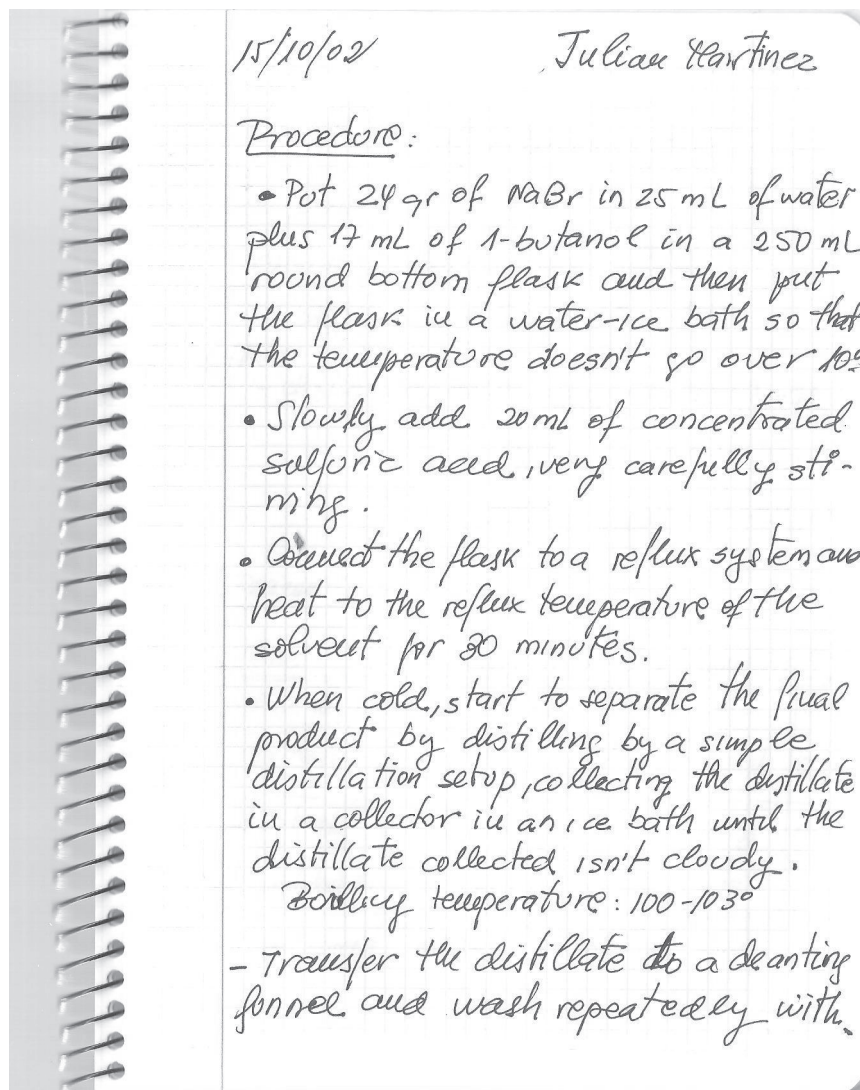 15/10/02 Julian Martinez
Procedure:
• Put 24 gr of NaBr in 25 mL of water
plus 17 mL of 1-butanol in a 250 mL
round bottom flask and then put
the flask in a water-ice bath so that
the temperature doesn't go over 10º
• Slowly add 20 mL of concentrated
sulfuric acid, very carefully sti-
rring.
• Connect the flask to a reflux system and
heat to the reflux temperature of the
solvent for 30 minutes.
• When cold, start to separate the final
product by distilling by a simple
distillation setup, collecting the distillate
in a collector in an ice bath until the
distillate collected isn't cloudy.
Boiling temperature: 100-103º
- Transfer the distillate to a deanting
funnel and wash repeatedly with